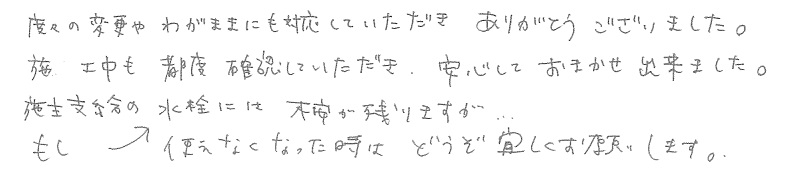 度々の変更や わがままにも対応していただき ありがとう ございました。
施工中も 都度 確認していただき、安心して おまかせ 出来ました。
施主支給の 水栓には 不安が残りますが…
もし ↗ 使えなくなった時は どうぞ 宜しくお願いします。